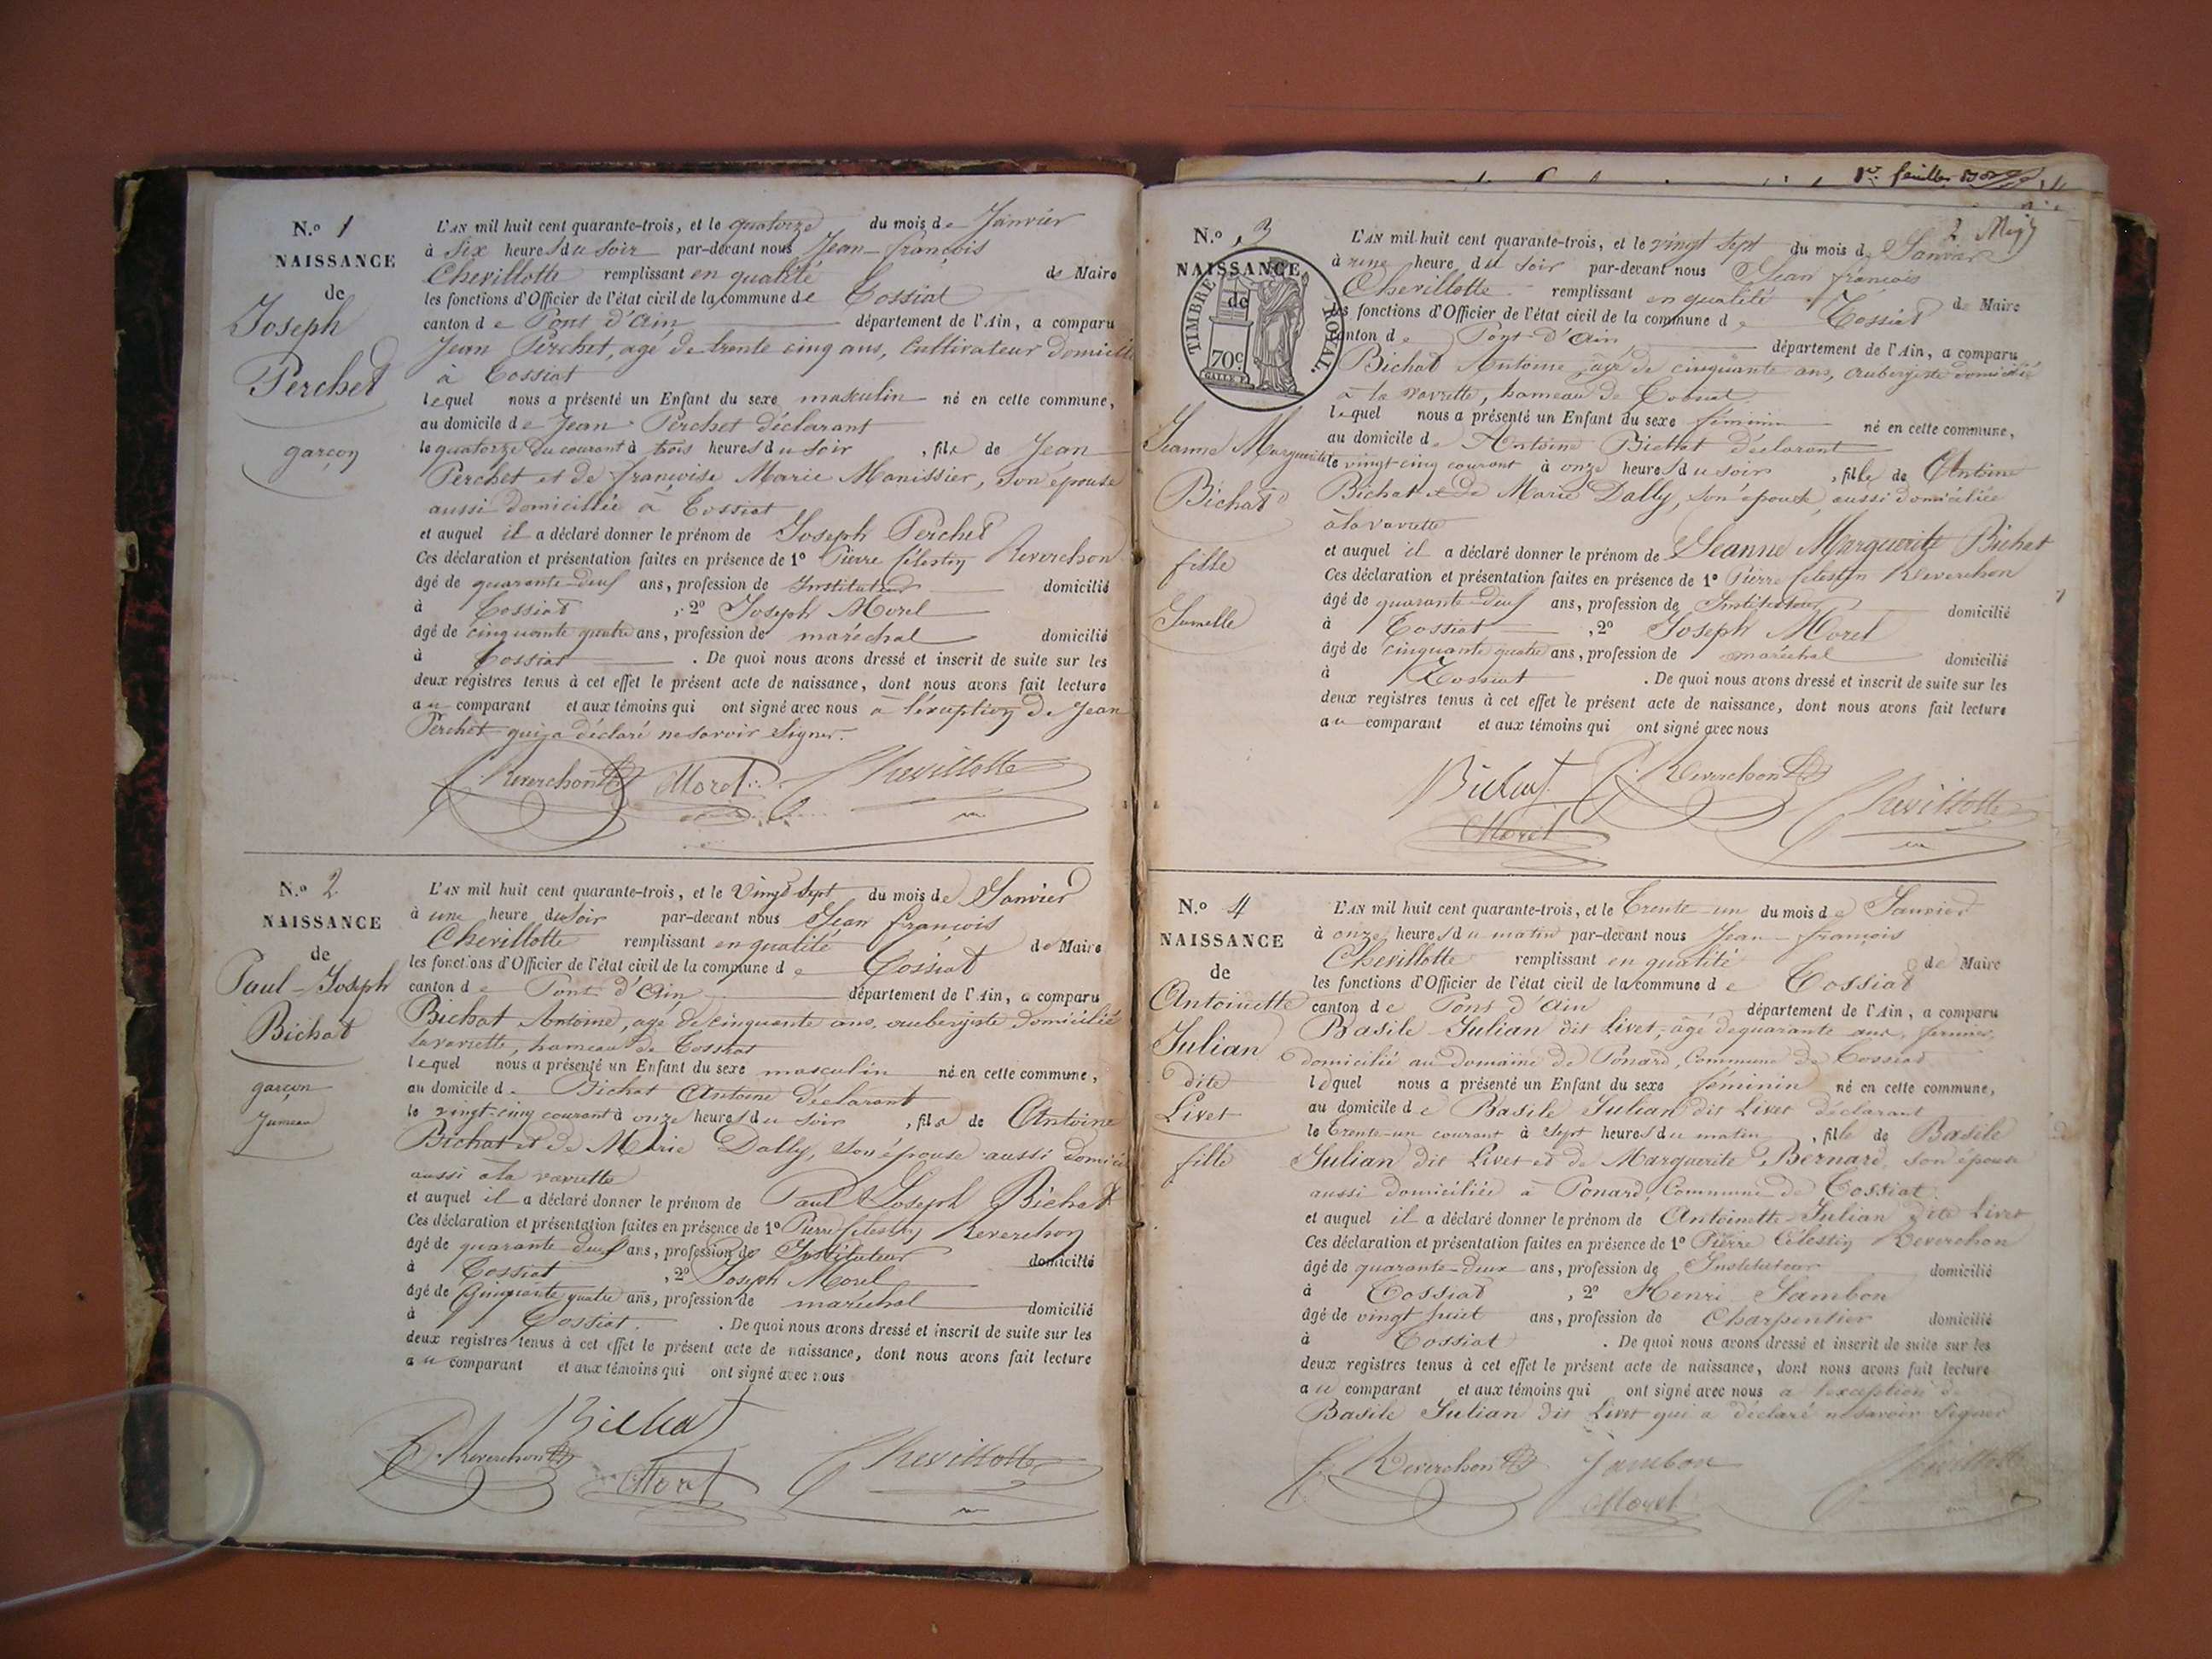 N.o 1
NAISSANCE
de
Joseph
Perchet
garçon
L'AN mil huit cent quarante-trois, et le quatorze du mois de Janvier
à Six heures du soir par-devant nous Jean-françois
Chevillotte remplissant en qualité de Maire
les fonctions d'Officier de l'état civil de la commune de Tossiat
canton de Pont d'Ain département de l'Ain, a comparu
Jean Perchet, agé de trente cinq ans, Cultivateur domicilié
à Tossiat
lequel nous a présenté un Enfant du sexe masculin né en cette commune,
au domicile de Jean Perchet déclarant
le quatorze du courant à trois heures du soir , fils de Jean
Perchet et de françoise Marie Monissier, son épouse
aussi domiciliée à Tossiat
et auquel il a déclaré donner le prénom de Joseph Perchet
Ces déclaration et présentation faites en présence de 1º Pierre Célestin Reverchon
âgé de quarante-deux ans, profession de Instituteur domicilié
à Tossiat , 2º Joseph Morel
âgé de cinquante quatre ans, profession de maréchal domicilié
à Tossiat . De quoi nous avons dressé et inscrit de suite sur les
deux registres tenus à cet effet le présent acte de naissance, dont nous avons fait lecture
au comparant et aux témoins qui ont signé avec nous à l'exception de Jean
Perchet qui a déclaré ne savoir signer.
Reverchon Morel Chevillotte
N.o 2
NAISSANCE
de
Paul-Joseph
Bichat
garçon
Jumeau
L'AN mil huit cent quarante-trois, et le Vingt Sept du mois de Janvier
à une heure du soir par-devant nous Jean françois
Chevillotte remplissant en qualité de Maire
les fonctions d'Officier de l'état civil de la commune de Tossiat
canton de Pont d'Ain département de l'Ain, a comparu
Bichat Antoine, agé de cinquante ans, aubergiste domicilié
la vavrette, hameau de Tossiat
lequel nous a présenté un Enfant du sexe masculin né en cette commune,
au domicile de Bichat Antoine déclarant
le vingt-cinq courant à onze heures du soir , fils de Antoine
Bichat et de Marie Dally, son épouse aussi domici
aussi a la vavrette
et auquel il a déclaré donner le prénom de Paul Joseph Bichat
Ces déclaration et présentation faites en présence de 1º Pierre Célestin Reverchon
âgé de quarante-deux ans, profession de Instituteur domicilié
à Tossiat , 2º Joseph Morel
âgé de Cinquante quatre ans, profession de maréchal domicilié
à Tossiat . De quoi nous avons dressé et inscrit de suite sur les
deux registres tenus à cet effet le présent acte de naissance, dont nous avons fait lecture
au comparant et aux témoins qui ont signé avec nous
Bichat
Reverchon Morel Chevillotte
1er feuillet
2
N.o 3
NAISSANCE
de
TIMBRE ROYAL.
70c.
Jeanne Marguerite
Bichat
fille
Jumelle
L'AN mil huit cent quarante-trois, et le vingt sept du mois de Janvier
à une heure du soir par-devant nous Jean françois
Chevillotte remplissant en qualité de Maire
les fonctions d'Officier de l'état civil de la commune de Tossiat
canton de Pont-d'Ain département de l'Ain, a comparu
Bichat Antoine, agé de cinquante ans, aubergiste domicilié
à la vavrette, hameau de Tossiat
lequel nous a présenté un Enfant du sexe féminin né en cette commune,
au domicile de Antoine Bichat déclarant
le vingt-cinq courant à onze heures du soir , fille de Antoine
Bichat et de Marie Dally, son épouse, aussi domiciliée
à la vavrette
et auquel il a déclaré donner le prénom de Jeanne Marguerite Bichat
Ces déclaration et présentation faites en présence de 1º Pierre Célestin Reverchon
âgé de quarante-deux ans, profession de Instituteur domicilié
à Tossiat , 2º Joseph Morel
âgé de cinquante quatre ans, profession de maréchal domicilié
à Tossiat . De quoi nous avons dressé et inscrit de suite sur les
deux registres tenus à cet effet le présent acte de naissance, dont nous avons fait lecture
au comparant et aux témoins qui ont signé avec nous
Bichat Reverchon Chevillotte
Morel
N.o 4
NAISSANCE
de
Antoinette
Julian
dite
Livet
fille
L'AN mil huit cent quarante-trois, et le Trente-un du mois de Janvier
à onze heures du matin par-devant nous Jean-françois
Chevillotte remplissant en qualité de Maire
les fonctions d'Officier de l'état civil de la commune de Tossiat
canton de Pont d'Ain département de l'Ain, a comparu
Basile Julian dit Livet, âgé de quarante ans, fermier,
domicilié au domaine de Ponard, Commune de Tossiat
lequel nous a présenté un Enfant du sexe féminin né en cette commune,
au domicile de Basile Julian dit Livet déclarant
le Trente-un courant à Sept heures du matin , fille de Basile
Julian dit Livet et de Marguerite Bernard son épouse
aussi domiciliée à Ponard, Commune de Tossiat
et auquel il a déclaré donner le prénom de Antoinette Julian dite Livet
Ces déclaration et présentation faites en présence de 1º Pierre Célestin Reverchon
âgé de quarante-deux ans, profession de Instituteur domicilié
à Tossiat , 2º Henri Jambon
âgé de vingt huit ans, profession de Charpentier domicilié
à Tossiat . De quoi nous avons dressé et inscrit de suite sur les
deux registres tenus à cet effet le présent acte de naissance, dont nous avons fait lecture
au comparant et aux témoins qui ont signé avec nous a l'exception de
Basile Julian dit Livet qui a déclaré ne savoir signer
Reverchon Jambon Chevillotte
Morel